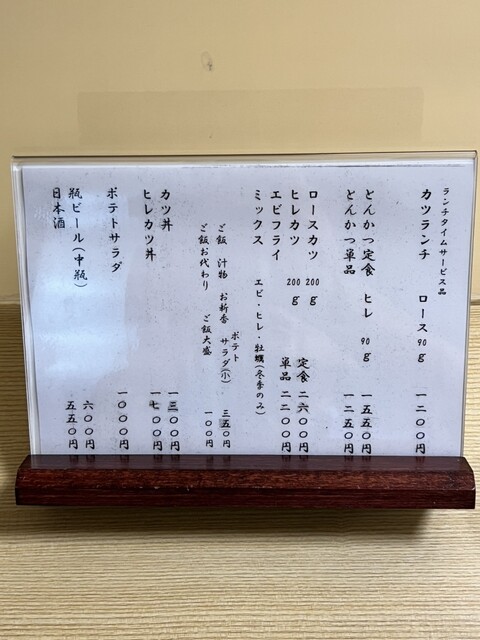 ランチタイムサービス品
カツランチ ロース90g 一二〇〇円
とんかつ定食 ヒレ 90g 一五五〇円
とんかつ単品 一二五〇円
ロースカツ 200g 定食 二六〇〇円
ヒレカツ 200g 単品 二二〇〇円
エビフライ
ミックス エビ・ヒレ・牡蠣(冬季のみ)
ポテト
ご飯 汁物 お新香 サラダ(小) 三五〇円
ご飯お代わり ご飯大盛 一〇〇円
カツ丼 一三〇〇円
ヒレカツ丼 一七〇〇円
ポテトサラダ 一〇〇〇円
瓶ビール(中瓶) 六〇〇円
日本酒 五五〇円